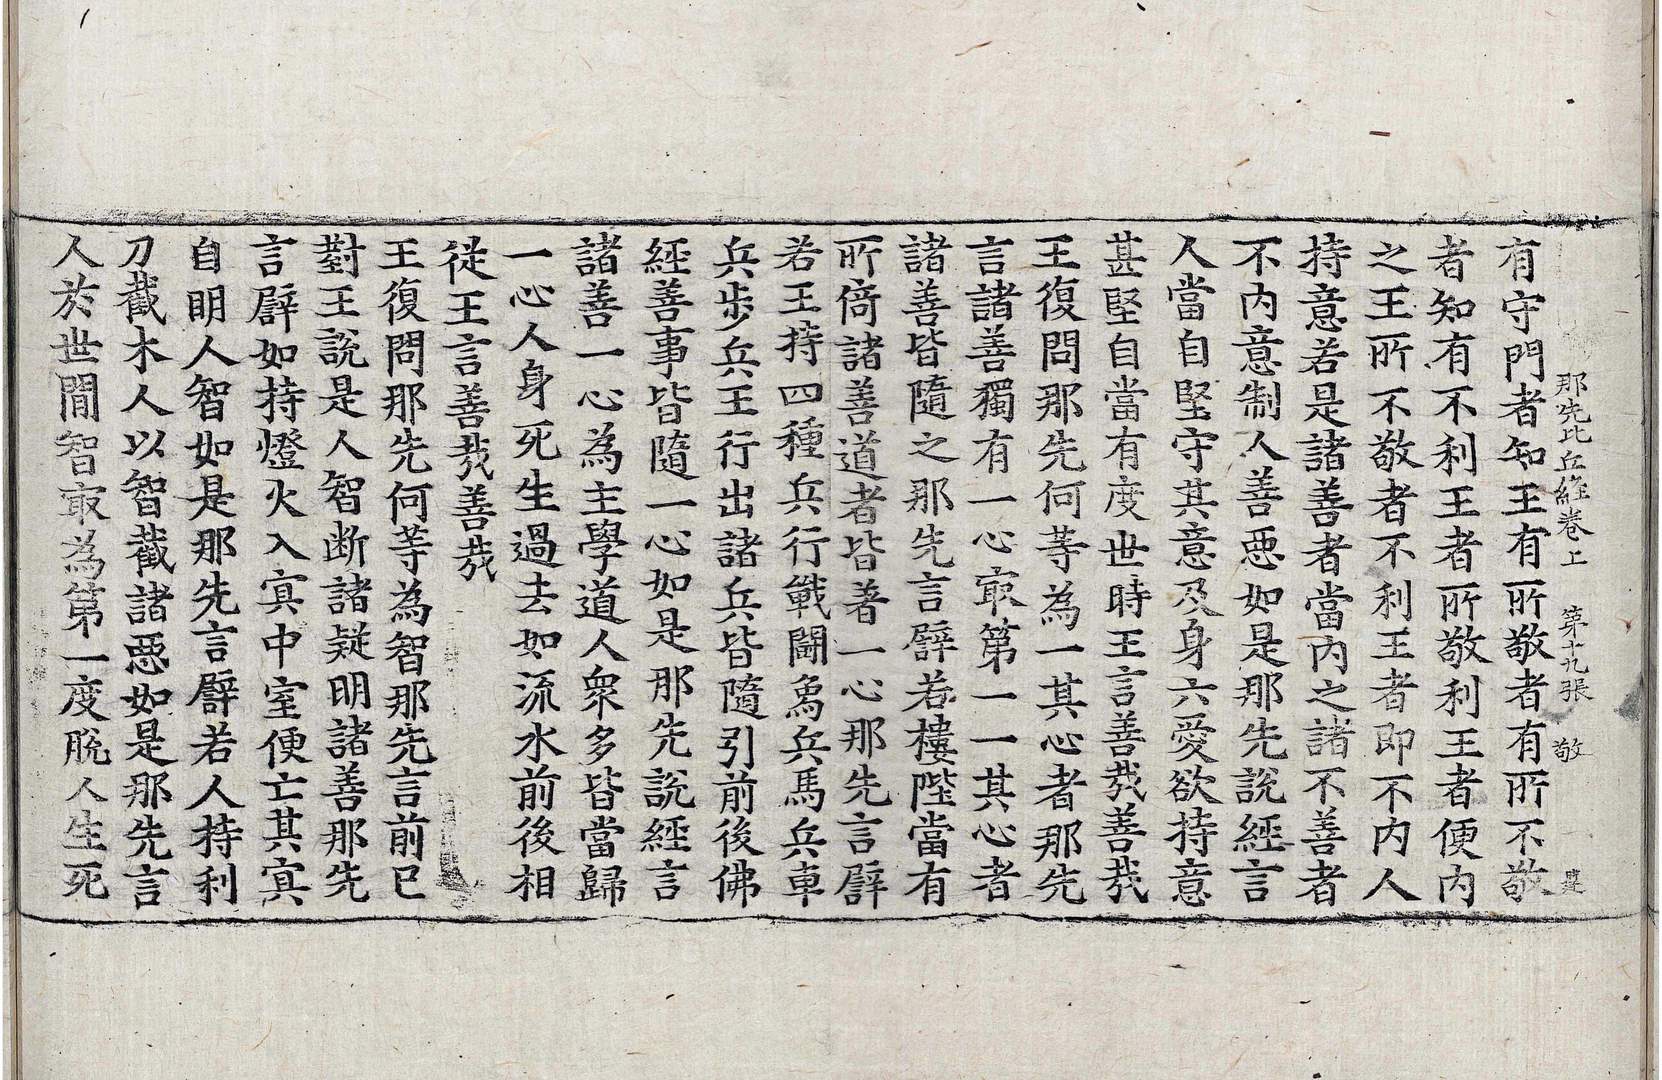 那先比丘經卷上 第十九張 敬
有守門者知王有所敬者有所不敬
者知有不利王者所敬利王者便內
之王所不敬者不利王者即不內人
持意若是諸善者當內之諸不善者
不內意制人善惡如是那先說經言
人當自堅守其意及身六愛欲持意
甚堅自當有度世時王言善㢤善㢤
王復問那先何等為一其心者那先
言諸善獨有一心㝡第一一其心者
諸善皆隨之那先言譬若樓陛當有
所倚諸善道者皆著一心那先言譬
若王持四種兵行戰鬪象兵馬兵車
兵步兵王行出諸兵皆隨引前後佛
經善事皆隨一心如是那先說經言
諸善一心為主學道人衆多皆當歸
一心人身死生過去如流水前後相
從王言善㢤善㢤
王復問那先何等為智那先言前已
對王說是人智断諸疑明諸善那先
言譬如持燈火入㝠中室便亡其㝠
自明人智如是那先言譬若人持利
刀截木人以智截諸惡如是那先言
人於世間智㝡為第一度脫人生死